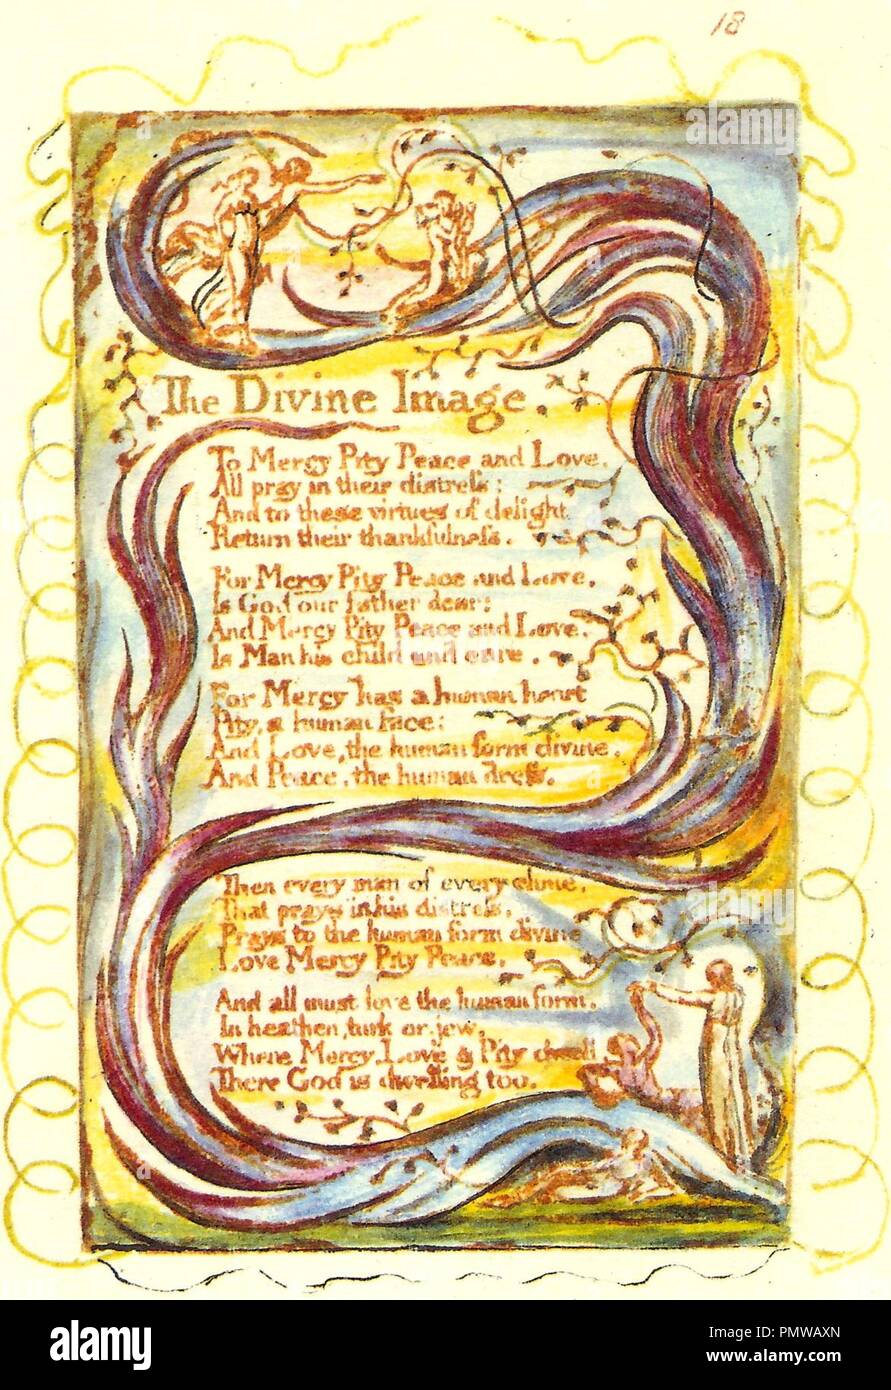 18
The Divine Image.
To Mercy Pity Peace and Love,
All pray in their distress:
And to these virtues of delight
Return their thankfulness.
For Mercy Pity Peace and Love,
Is God our father dear:
And Mercy Pity Peace and Love,
Is Man his child and care.
For Mercy has a human heart
Pity, a human face:
And Love, the human form divine,
And Peace, the human dress.
Then every man of every clime,
That prays in his distress,
Prays to the human form divine
Love Mercy Pity Peace.
And all must love the human form,
In heathen, turk or jew.
Where Mercy, Love & Pity dwell
There God is dwelling too.
alamy
alamy
Image ID: PMWAXN
www.alamy.com